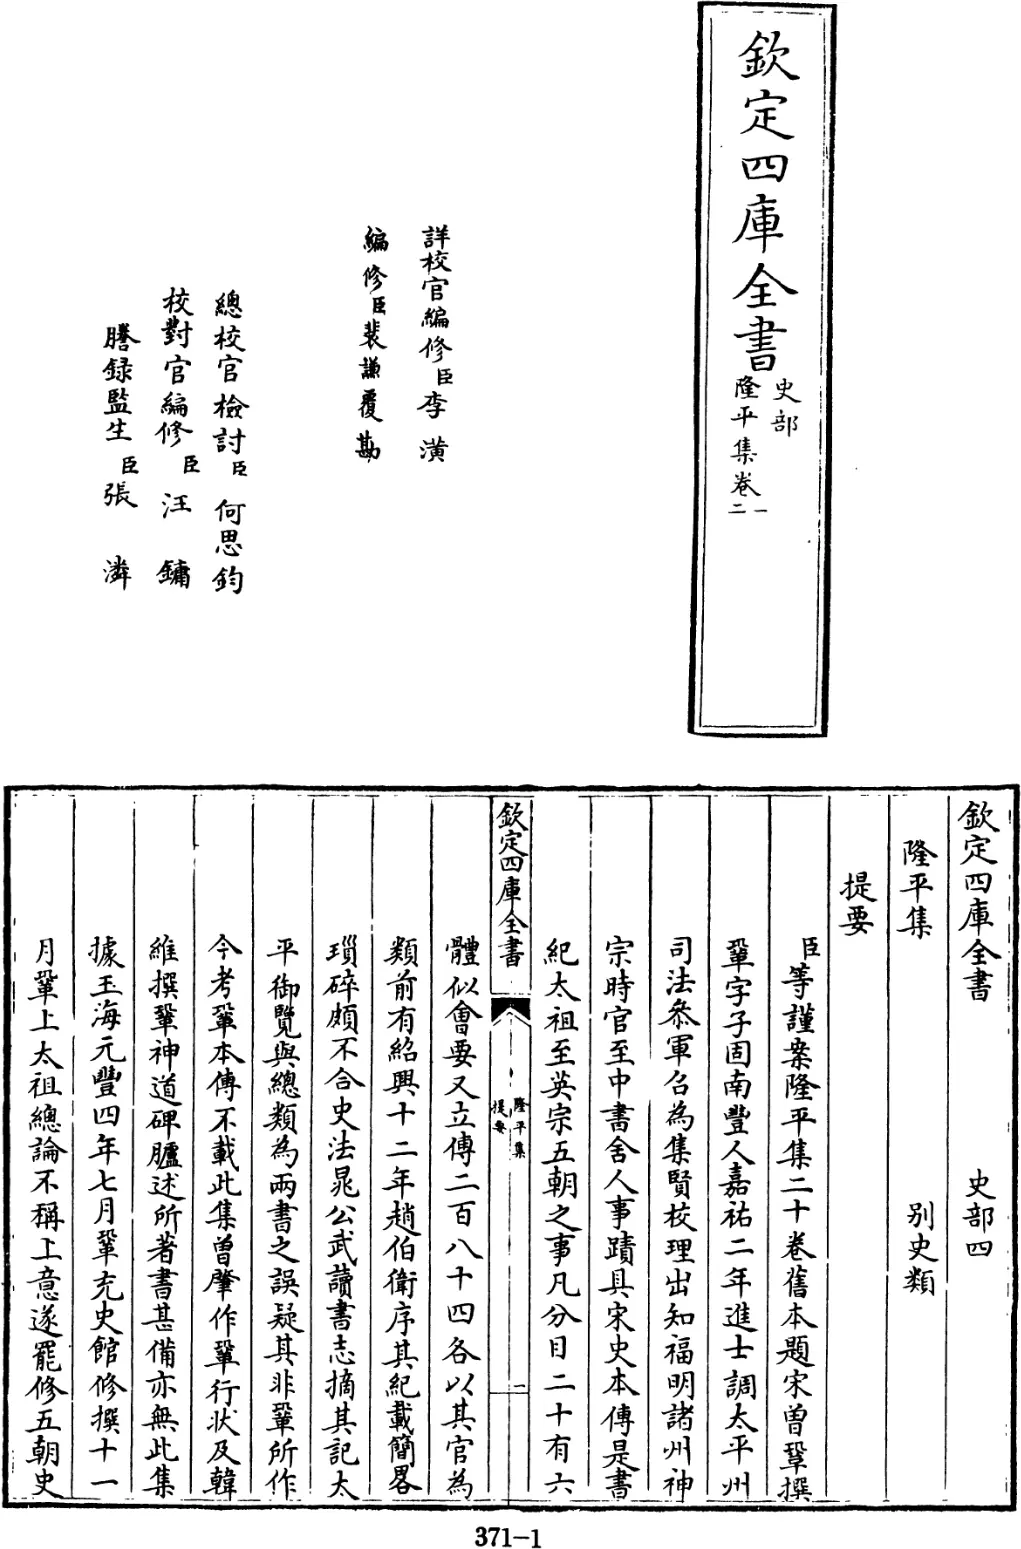 欽定四庫全書
史部
隆平集卷一二
詳校官編修臣李潢
編修臣裴謙覆勘
總校官檢討臣何思鈞
校對官編修臣汪鏞
謄録監生臣張潾
欽定四庫全書 史部四
隆平集 别史類
提要
臣等謹案隆平集二十卷舊本題宋曾鞏撰
鞏字子固南豐人嘉祐二年進士調太平州
司法叅軍召為集賢校理出知福明諸州神
宗時官至中書舍人事蹟具宋史本傳是書
紀太祖至英宗五朝之事凡分目二十有六
欽定四庫全書
隆平集
提要
一
體似會要又立傳二百八十四各以其官為
類前有紹興十二年趙伯衛序其紀載簡畧
瑣碎頗不合史法晁公武讀書志摘其記太
平御覽與總類為兩書之誤疑其非鞏所作
今考鞏本傳不載此集曾肇作鞏行狀及韓
維撰鞏神道碑臚述所著書甚備亦無此集
據玉海元豐四年七月鞏充史館修撰十一
月鞏上太祖總論不稱上意遂罷修五朝史
371-1